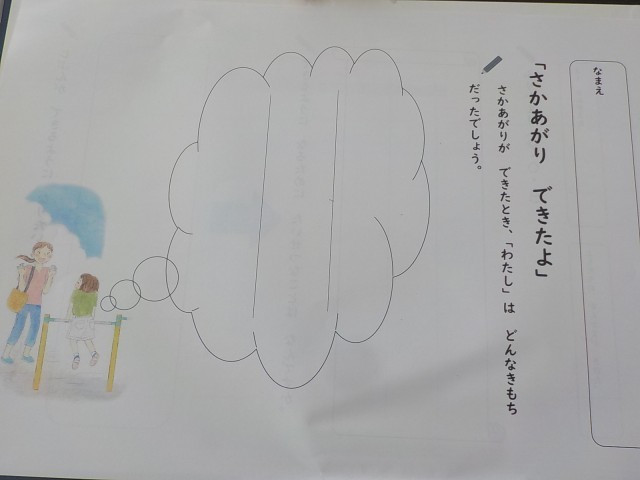 なまえ
「さかあがり　できたよ」
さかあがりが　できたとき、「わたし」は　どんなきもち
だったでしょう。